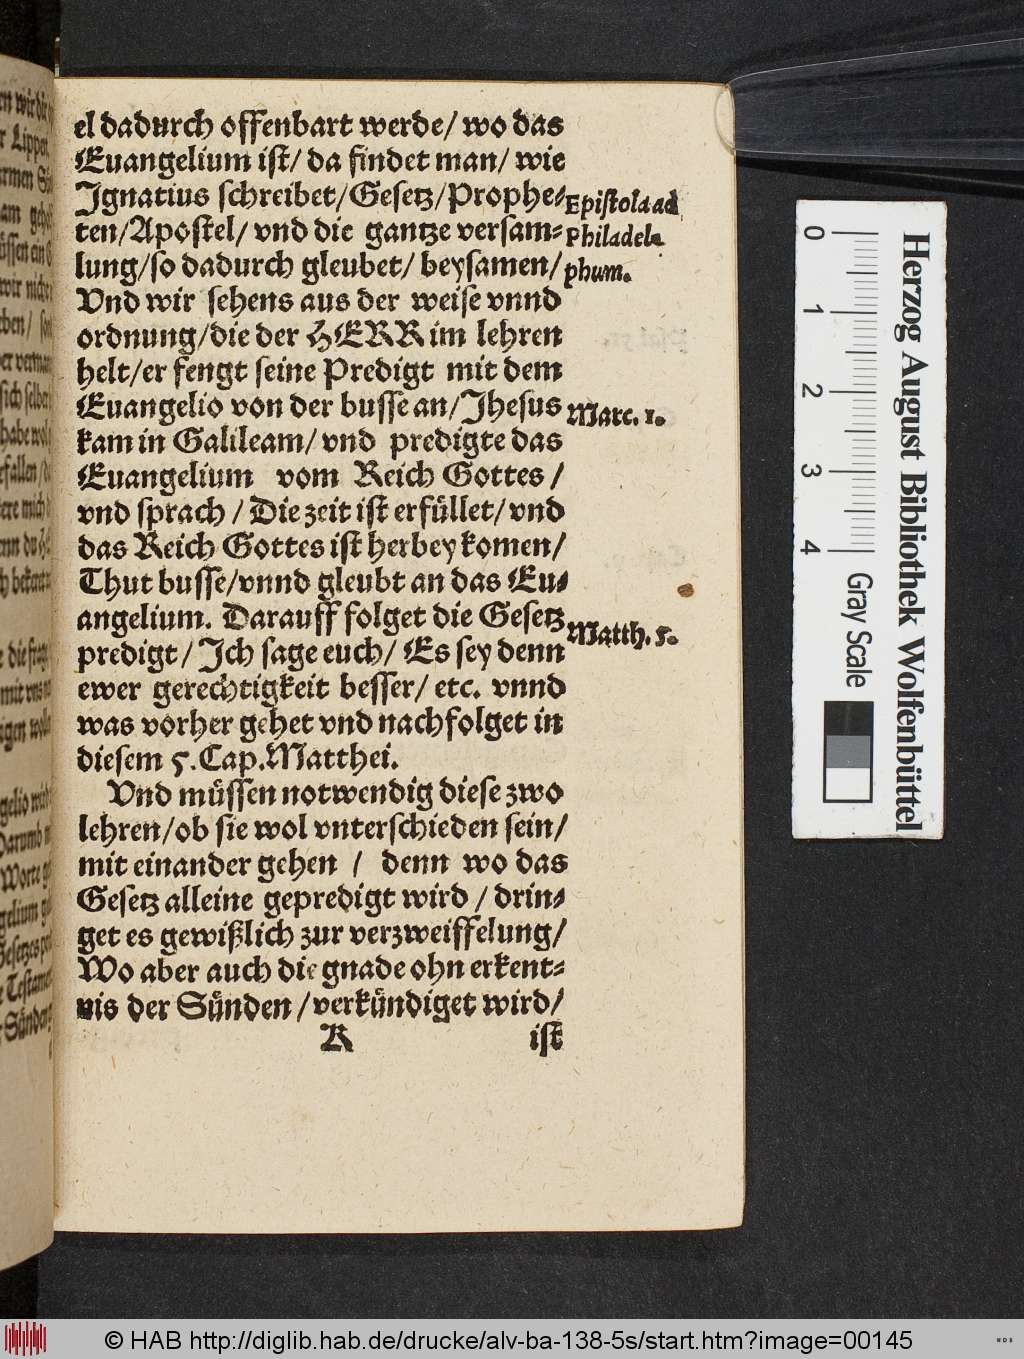 el dadurch offenbart werde/ wo das
Euangelium ist/ da findet man/ wie
Ignatius schreibet/Gesetz/Prophe-
Epistola ad
ten/Apostel/ vnd die gantze versam-
Philadel-
lung/so dadurch gleubet/ beysamen/
phum.
Vnd wir sehens aus der weise vnnd
ordnung/die der HERR im lehren
helt/er fengt seine Predigt mit dem
Euangelio von der busse an/Jhesus
Marc. 1.
kam in Galileam/ vnd predigte das
Euangelium vom Reich Gottes /
vnd sprach / Die zeit ist erfüllet/ vnd
das Reich Gottes ist herbey komen/
Thut busse/vnnd gleubt an das Eu-
angelium. Darauff folget die Gesetz
Matth. 5.
predigt/ Ich sage euch/ Es sey denn
ewer gerechtigkeit besser/ etc. vnnd
was vorher gehet vnd nachfolget in
diesem 5. Cap. Matthei.
Vnd müssen notwendig diese zwo
lehren/ob sie wol vnterschieden sein/
mit einander gehen / denn wo das
Gesetz alleine gepredigt wird / drin-
get es gewißlich zur verzweiffelung/
Wo aber auch die gnade ohn erkent-
nis der Sünden /verkündiget wird/
K
ist
Herzog August Bibliothek Wolfenbüttel
0 1 2 3 4
Gray Scale
© HAB http://diglib.hab.de/drucke/alv-ba-138-5s/start.htm?image=00145